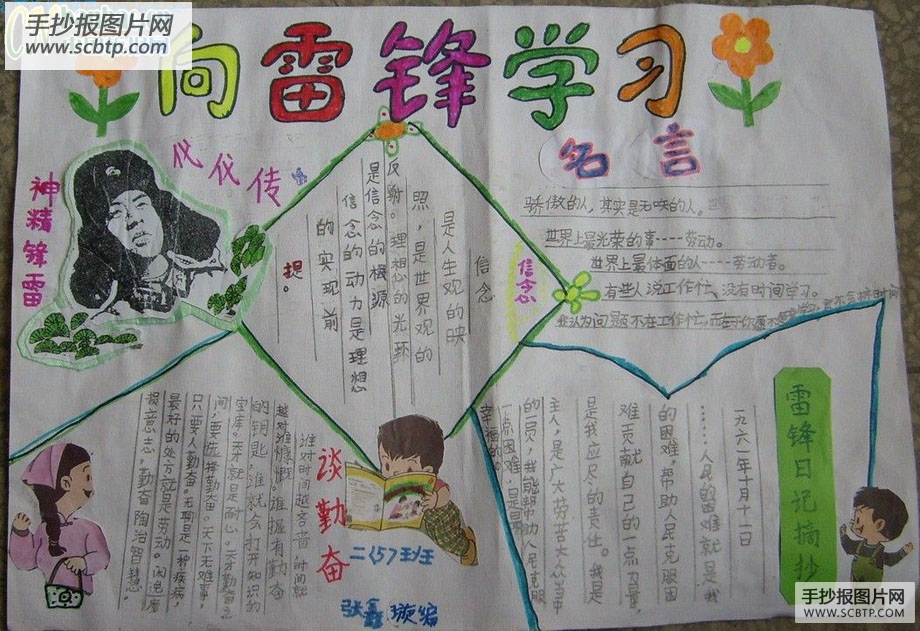 手抄报图片网
www.scbtp.com
向雷锋学习
神精锋雷
代代传
名言
骄傲的人，其实是无味的人。
世界上最光荣的事----劳动。
世界上最体面的人----劳动者。
有些人说工作忙、没有时间学习。
我认为问题不在工作忙，而在于你愿不愿意学习，
信念
信念
是人生观的映
照，是世界观的
反射。理想的光环
是信念的根源
信念的动力是理想
的实现前
提。
雷锋日记摘抄
一九六一年十月十一日
……人民的困难就是我
的困难，帮助人民克服困
难贡献自己的一点力量，
是我应尽的责任。我是
主人，是广大劳苦大众当中
的一员，我能帮助人民克服
一点困难，是最
幸福的
谈勤奋
谁对时间越吝啬，时间就
越对谁慷慨。谁握有勤奋
的钥匙，谁就会打开知识的
宝库。天才就是耐心。天才勤奋之
间，要选择勤奋。天下无难事，
只要人勤奋。无聊是一种疾病，
最好的处方就是劳动。闲逸磨
损意志，勤奋陶冶智慧。
二（57班
张鑫璇编
手抄报图片网
www.SCBTP.COM